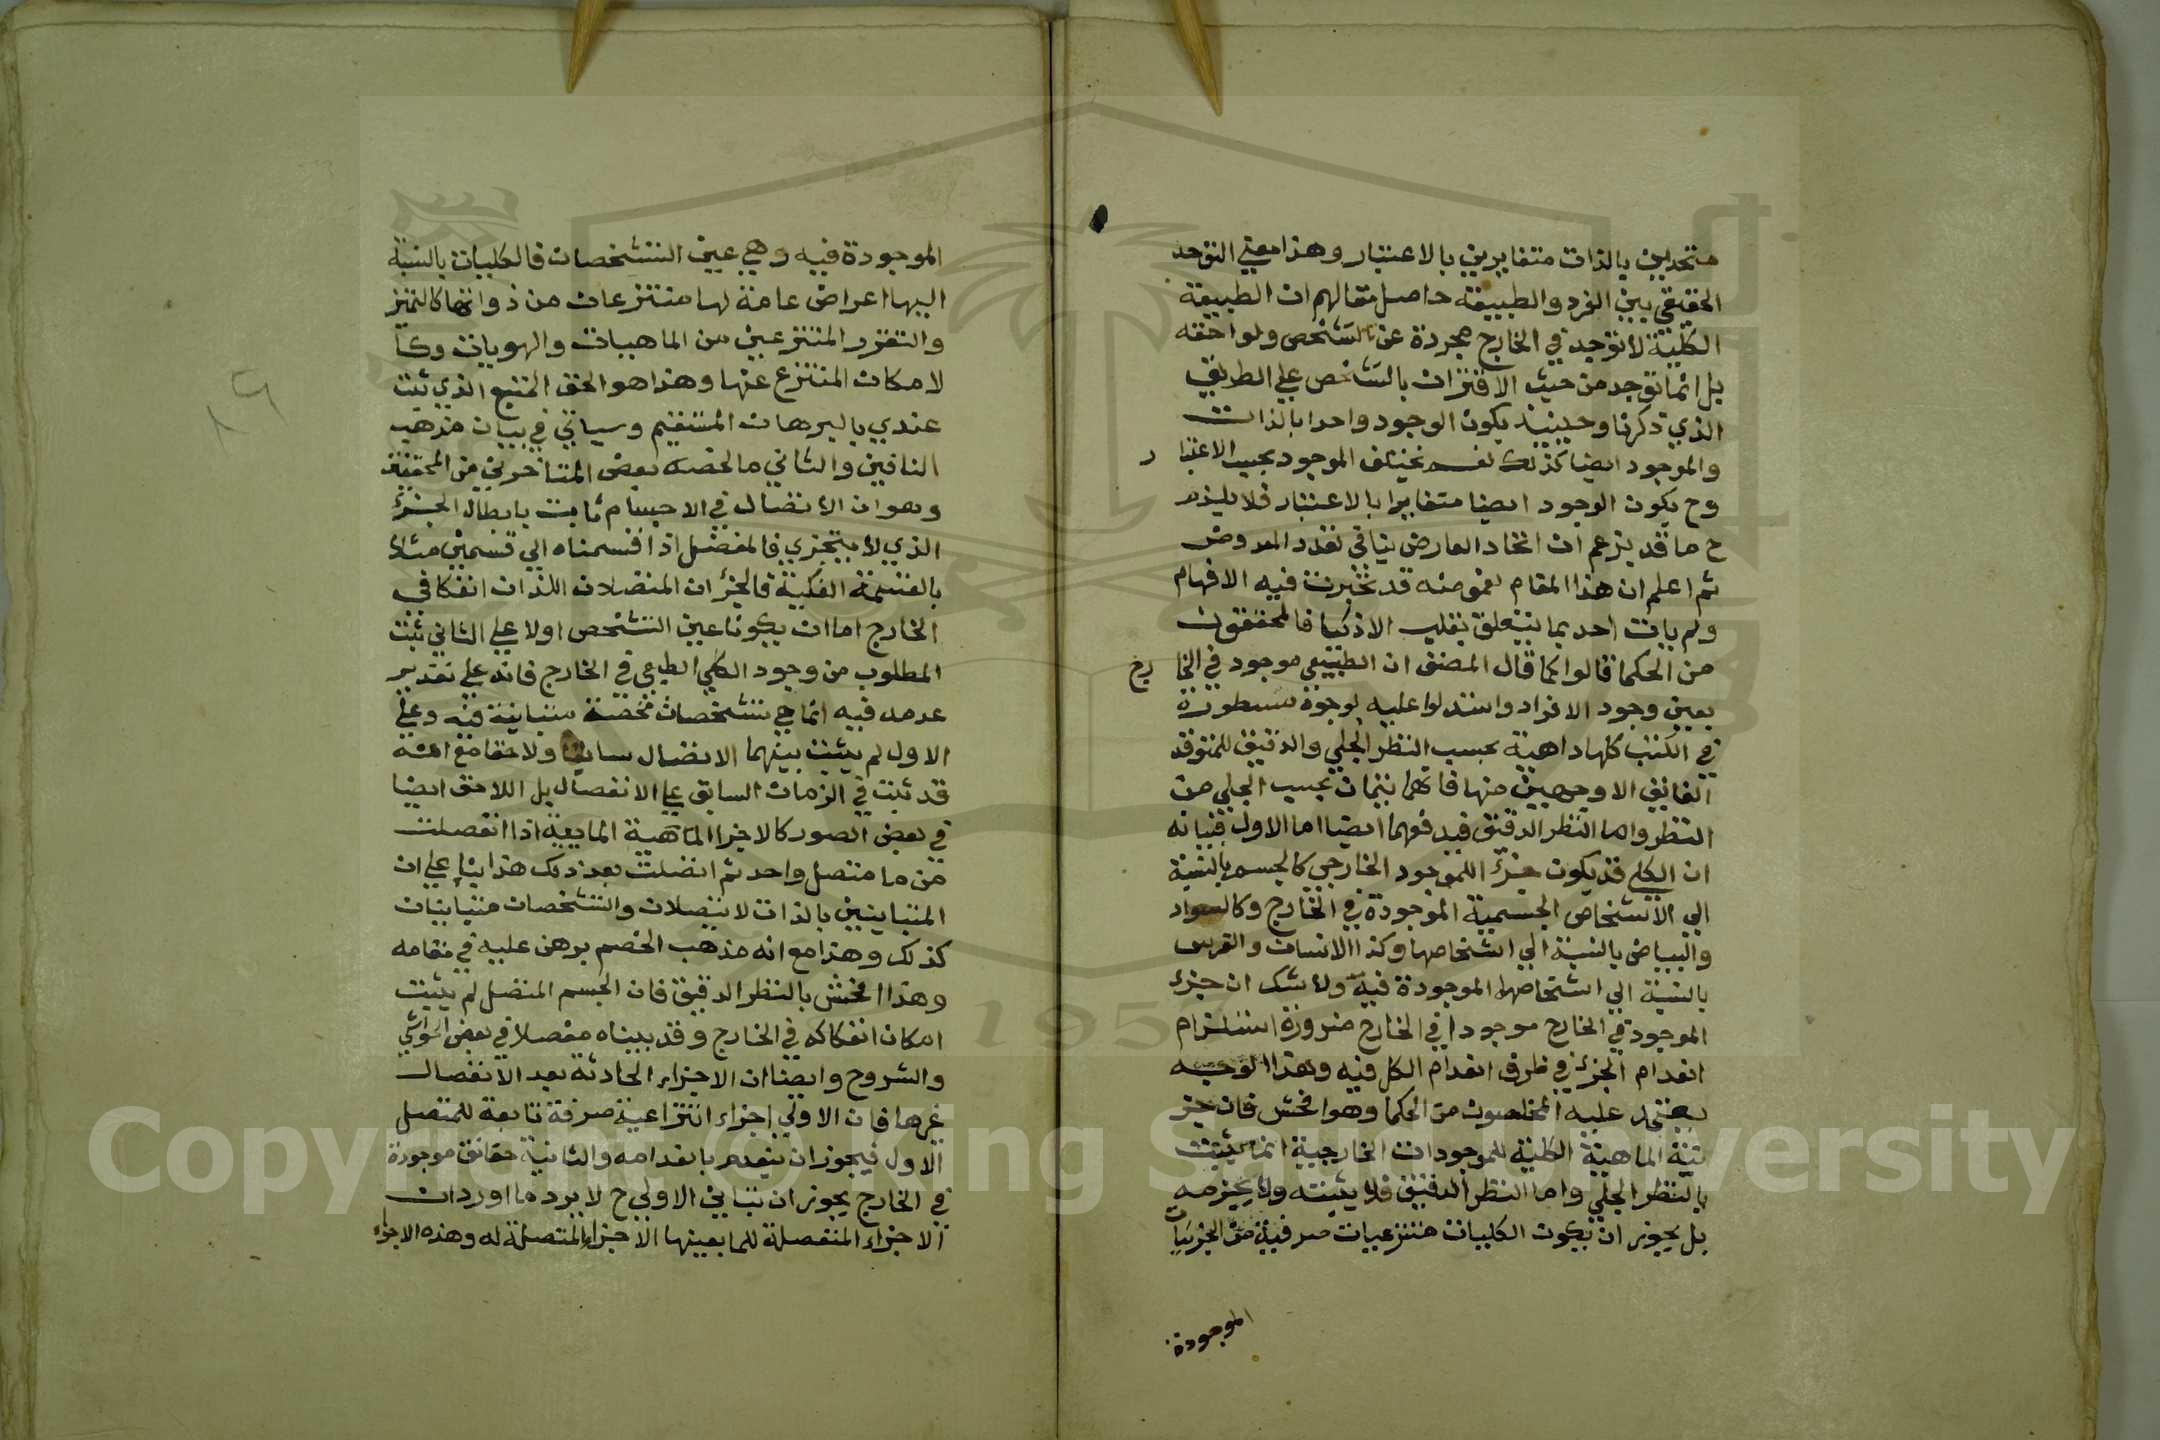 متحدين بالذات متغايرين بالاعتبار وهذا معني التوحد
الحقيقي بين الفرد والطبيعة حاصل مقالهم ان الطبيعة
الكلية لا توجد في الخارج مجردة عن التشخص ولواحقه
بل انما توجد من حيث الاقتران بالتشخص علي الطريق
الذي ذكرنا وحينيذ يكون الوجود واحدا بالذات
والموجود ايضا كذلك نعم يختلف الموجود بحسب الاعتبار
وح يكون الوجود ايضا متغايرا بالاعتبار فلا يلزم
ح ما قد يزعم ان اتحاد العارض ينافي تعدد المعروض
ثم اعلم ان هذا المقام لغموضه قد تحيرت فيه الافهام
ولم يات احد بما يتعلق بقلب الاذكيا فالمحققون
من الحكما قالوا كما قال المصنف ان الطبيعي موجود في الخارج
بعين وجود الافراد واستدلوا عليه بوجوه مسطورة
في الكتب كلها داهية بحسب النظر الجلي والدقيق للمتوقد
الفايق الا وجهين منها فانهما يتمان بحسب الجلي من
النظر واما النظر الدقيق فيدفعهما ايضا اما الاول فبيانه
ان الكلي قد يكون جزء للموجود الخارجي كالجسم بالنسبة
الي الاشخاص الجسمية الموجودة في الخارج وكالسواد
والبياض بالنسبة الي اشخاصها وكذا الانسان والفرس
بالنسبة الي اشخاصها الموجودة فيه ولا شك ان جزء
الموجود في الخارج موجود في الخارج ضرورة استلزام
انعدام الجزء في ظرف انعدام الكل فيه وهذا الوجه
يعتمد عليه المخلصون من الحكما وهو افحش فان جز
ئية الماهية الكلية للموجودات الخارجية انما يثبت
بالنظر الجلي واما النظر الدقيق فلا يثبته ولا يجزمه
بل يجوز ان يكون الكليات منتزعيات صرفية من الجزئيات
الموجودة
الموجودة فيه وهي عين التشخصات فالكليات بالنسبة
اليها اعراض عامة لها منتزعات من ذواتها كالتميز
والتقرر المنتزعين من الماهيات والهويات وكا
لامكان المنتزع عنها وهذا هو الحق المتبع الذي ثبت
عندي بالبرهان المستقيم وسياتي في بيان مذهب
النافين والثاني ما لخصه بعض المتاخرين من المحققين
وهو ان الاتصال في الاجسام ثابت بابطال الجزء
الذي لا يتجزي فالمفصل اذا قسمناه الي قسمين مثلا
بالقسمة الفكية فالجزان المنفصلان اللذان انفكا في
الخارج اما ان يكونا عين التشخص اولا علي الثاني ثبت
المطلوب من وجود الكلي الطبعي في الخارج فانه علي تقدير
عدمه فيه انما هي تشخصات محضة متباينة فيه وعلي
الاول لم يثبت بينهما الاتصال سابقا ولاحقا مع انه
قد ثبت في الزمان السابق علي الانفصال بل اللاحق ايضا
في بعض الصور كالاجزا الماهية المايعة اذا انفصلت
من ما متصل واحد ثم اتصلت بعد ذلك هذا بناء علي ان
المتباينين بالذات لا يتصلان والتشخصات متباينات
كذلك وهذا مع انه مذهب الخصم برهن عليه في مقامه
وهذا افحش بالنظر الدقيق فان الجسم المتصل لم يثبت
امكان انفكاكه في الخارج وقد بيناه مفصلا في بعض الحواشي
والشروح وايضا ان الاجزاء الحادثة بعد الانفصال
غيرها فان الاولي اجزاء انتزاعية صرفة تابعة للمتصل
الاول فيجوز ان ينعدم بانعدامه والثانية حقائق موجودة
في الخارج يجوز ان تباين الاولي ح لا يرد ما اورد ان
الاجزاء المنفصلة للما بعينها الاجزاء المتصلة له وهذه الاجزاء
٨٩
Copyright © King Saud University
1957